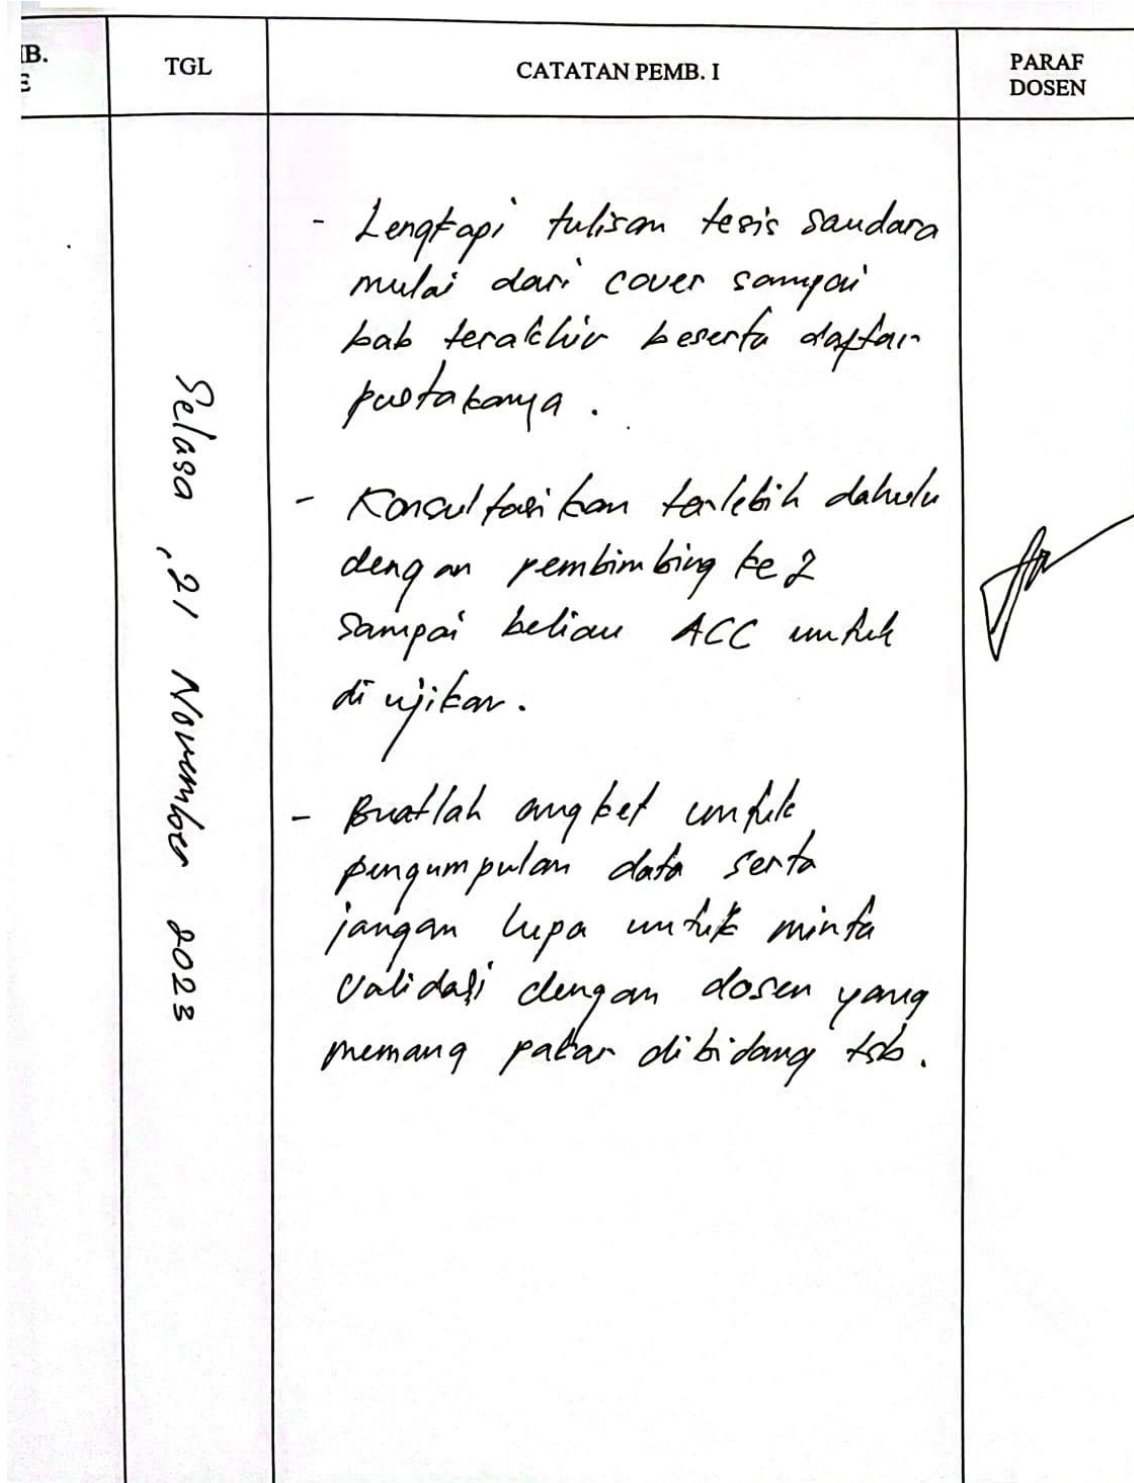 IB.
E
TGL
CATATAN PEMB. I
PARAF
DOSEN
Selasa, 21 November 2023
- Lengkapi tulisan tesis saudara
mulai dari cover sampai
bab terakhir beserta daftar
pustakanya.
- Konsultasikan terlebih dahulu
dengan pembimbing ke 2
sampai beliau ACC untuk
di ujikan.
- Buatlah angket untuk
pengumpulan data serta
jangan lupa untuk minta
validasi dengan dosen yang
memang pakar dibidang tsb.